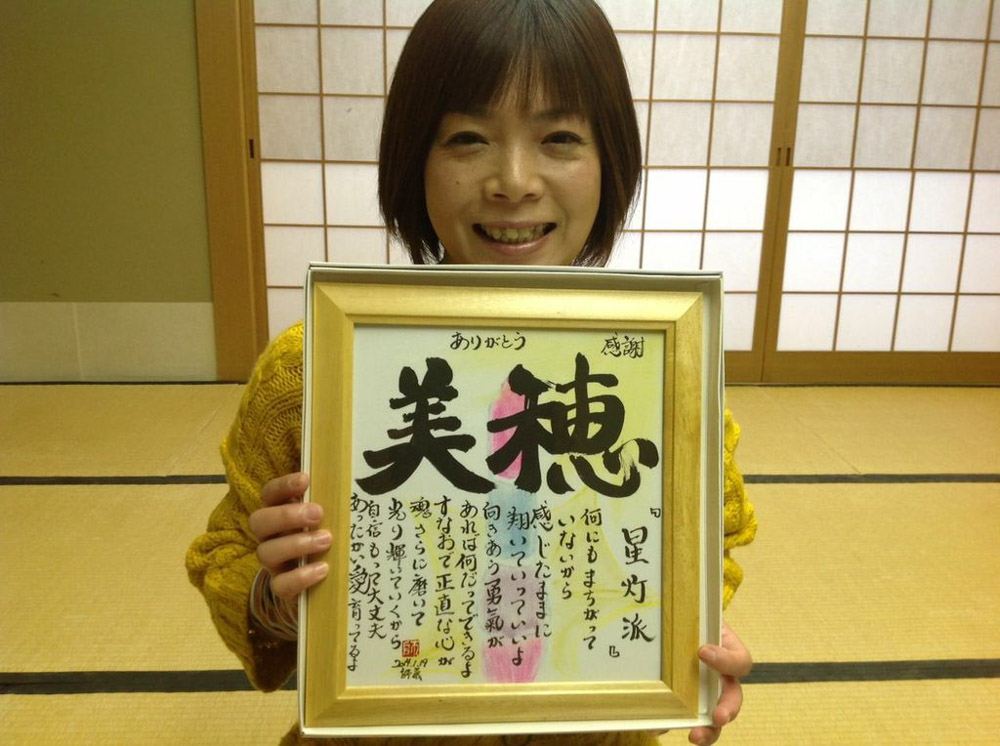 ありがとう 感謝
美穂
『星灯派』
何にもまちがって
いないから
感じたままに
翔いていっていいよ
向きあう勇氣が
あれば何だってできるよ
すなおで正直な心が
魂さらに磨いて
光り輝いていくから
自信もって大丈夫
あったかい愛育ってるよ
2014.1.19